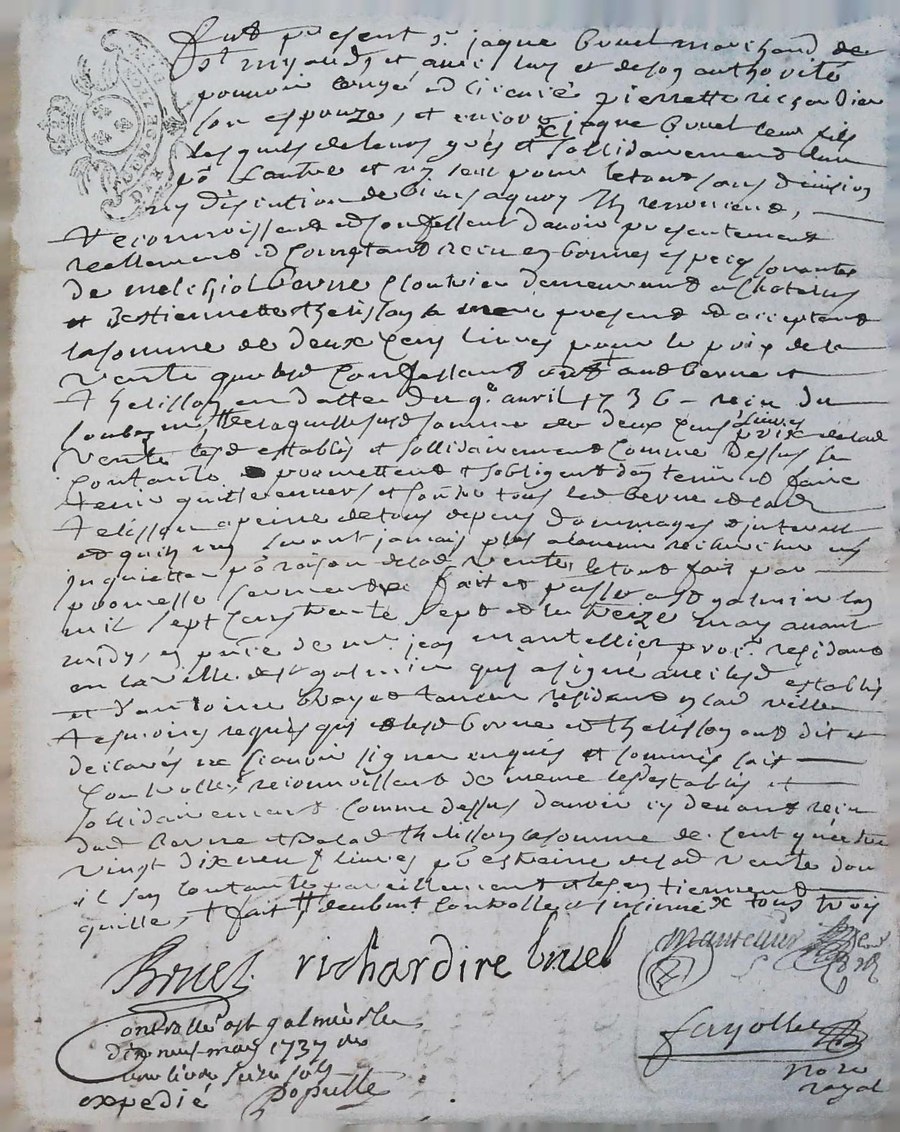 fut present sr jaque bruel marchand de
st et avec luy et de son authorité
pouvoir congé et licence pierrette richardier
son espouze, et encore jaque bruel leur fils
lesquels de leurs grés et sollidairement l'un
po l'autre et un seul pour le tout sans division
ny discution de biens a quoy ils renoncent,
reconnoissent et confessent d'avoir presentement
reellement et comptant receu en bonnes especes sonantes
de melchiol berne demeurant a
et estiennette thelisson sa mere present et acceptant
la somme de deux cens livres pour le prix de la
vente que lesd confessants aud berne et
thelisson en datte du 9e avril 1736 receu du
laquelle susd somme de deux cens livres prix de lad
vente lesd establis et sollidairement comme dessus se
contante promettent et s'obligent d'en tenir et faire
tenir quitte envers et contre tous led berne et lad
telisson a peine de tous depens dommages et interest
et qu'ils n'en seront jamais plus a l'avenir recherches ny
inquiettés po raison de lad vente, le tout fait par
promesse serment fait et passé a st galmier l'an
mil sept cens trente sept et le treize may avant
midy, en pnce de mr jean mantellier proc. residant
en la ville de st galmier qui a signé avec lesd establis
et d'antoine tanneur residant en lad ville
tesmoins requis qui et lesd berne et thelisson ont dit et
declarés ne sçavoir signer enquis et sommés soit
controllé, reconnoissants de meme lesd establis et
sollidairement comme dessus d'avoir cy devant receu
dud berne et de lad thelisson la somme de cent quattre
vingt dix neuf livres po estreine de lad vente dont
il son contants pareillement et les en tiennent
quitte, et fait controllé et insinué tous trois
Bruel richardire bruel mantellier
Controllé a st galmier le
dix neuf may 1737 reçu
une livre seize sols
fayolle
nore
royal
expedié Populle